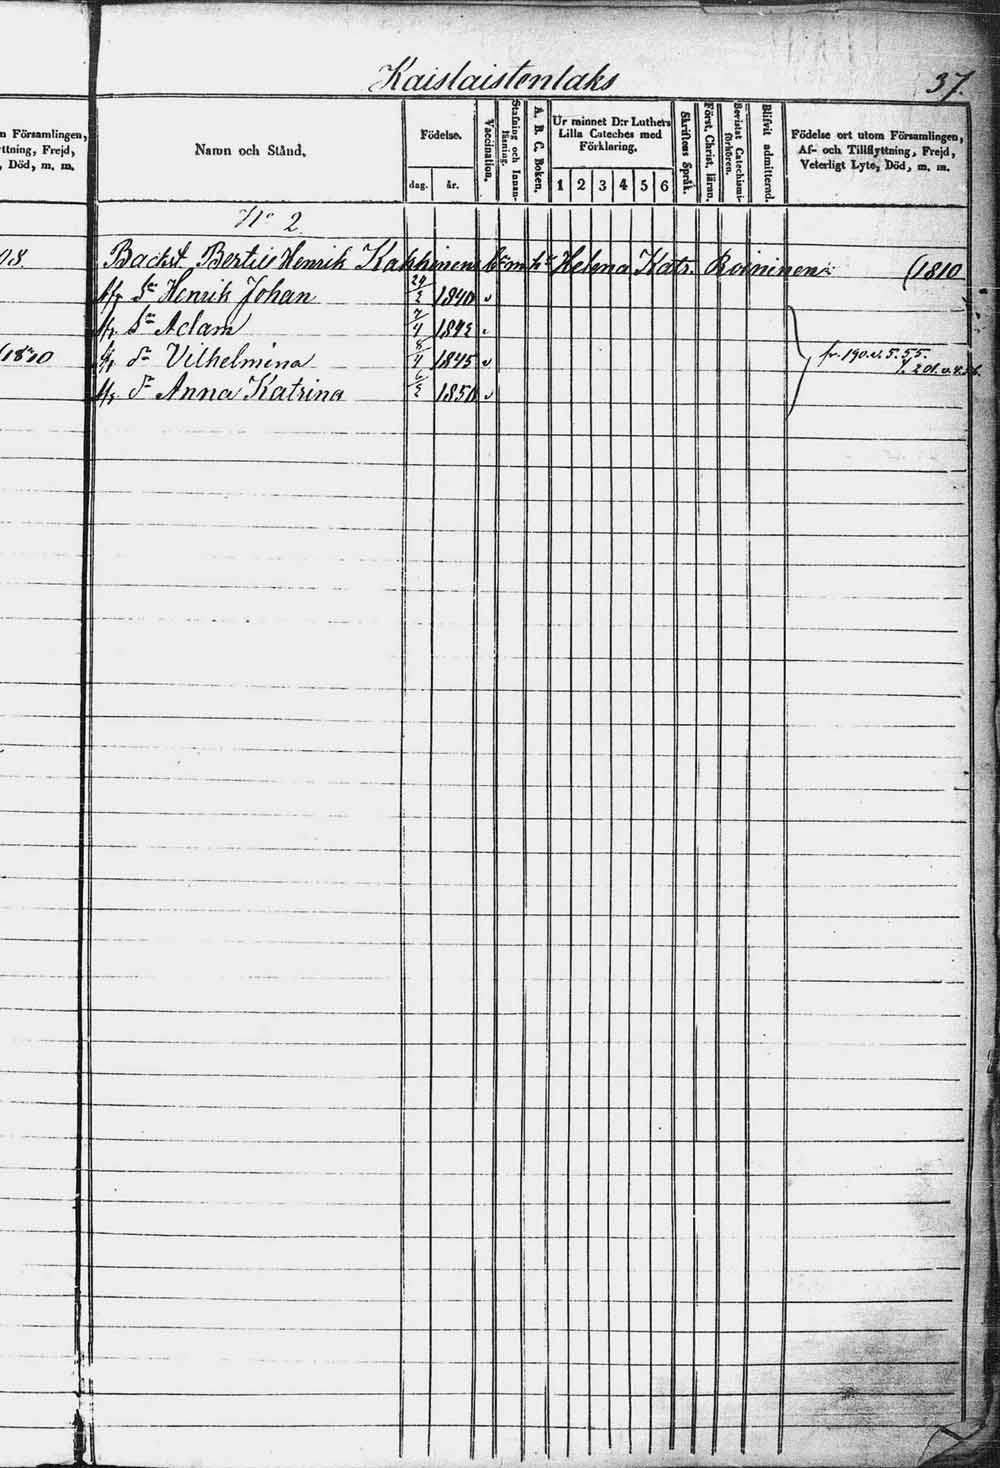 Kaislaistenlaks
37.
n Församlingen,
ttning, Frejd,
, Död, m. m.
Namn och Stånd.
Födelse.
dag. år.
Vaccination.
Stafning och Innan-
läsning.
A. B. C. Boken.
Ur minnet D:r Luthers
Lilla Cateches med
Förklaring.
1 2 3 4 5 6
Skriftens Språk.
Först. Christ. läran.
Bevistat Catechismi-
förhören.
Blifvit admitterad.
Födelse ort utom Församlingen,
Af- och Tillflyttning, Frejd,
Veterligt Lyte, Död, m. m.
No 2
08.
Backst. Bertils Henrik Kakkinens Helena Katr. Roininen (1810
Sn Henrik Johan 29/2 1840 v
Sn Adam 7/4 1842
(1840
dr Vilhelmina 8/4 1845 v
fr. 190. v. 5. 55.
dr Anna Katrina 6/2 1850 v